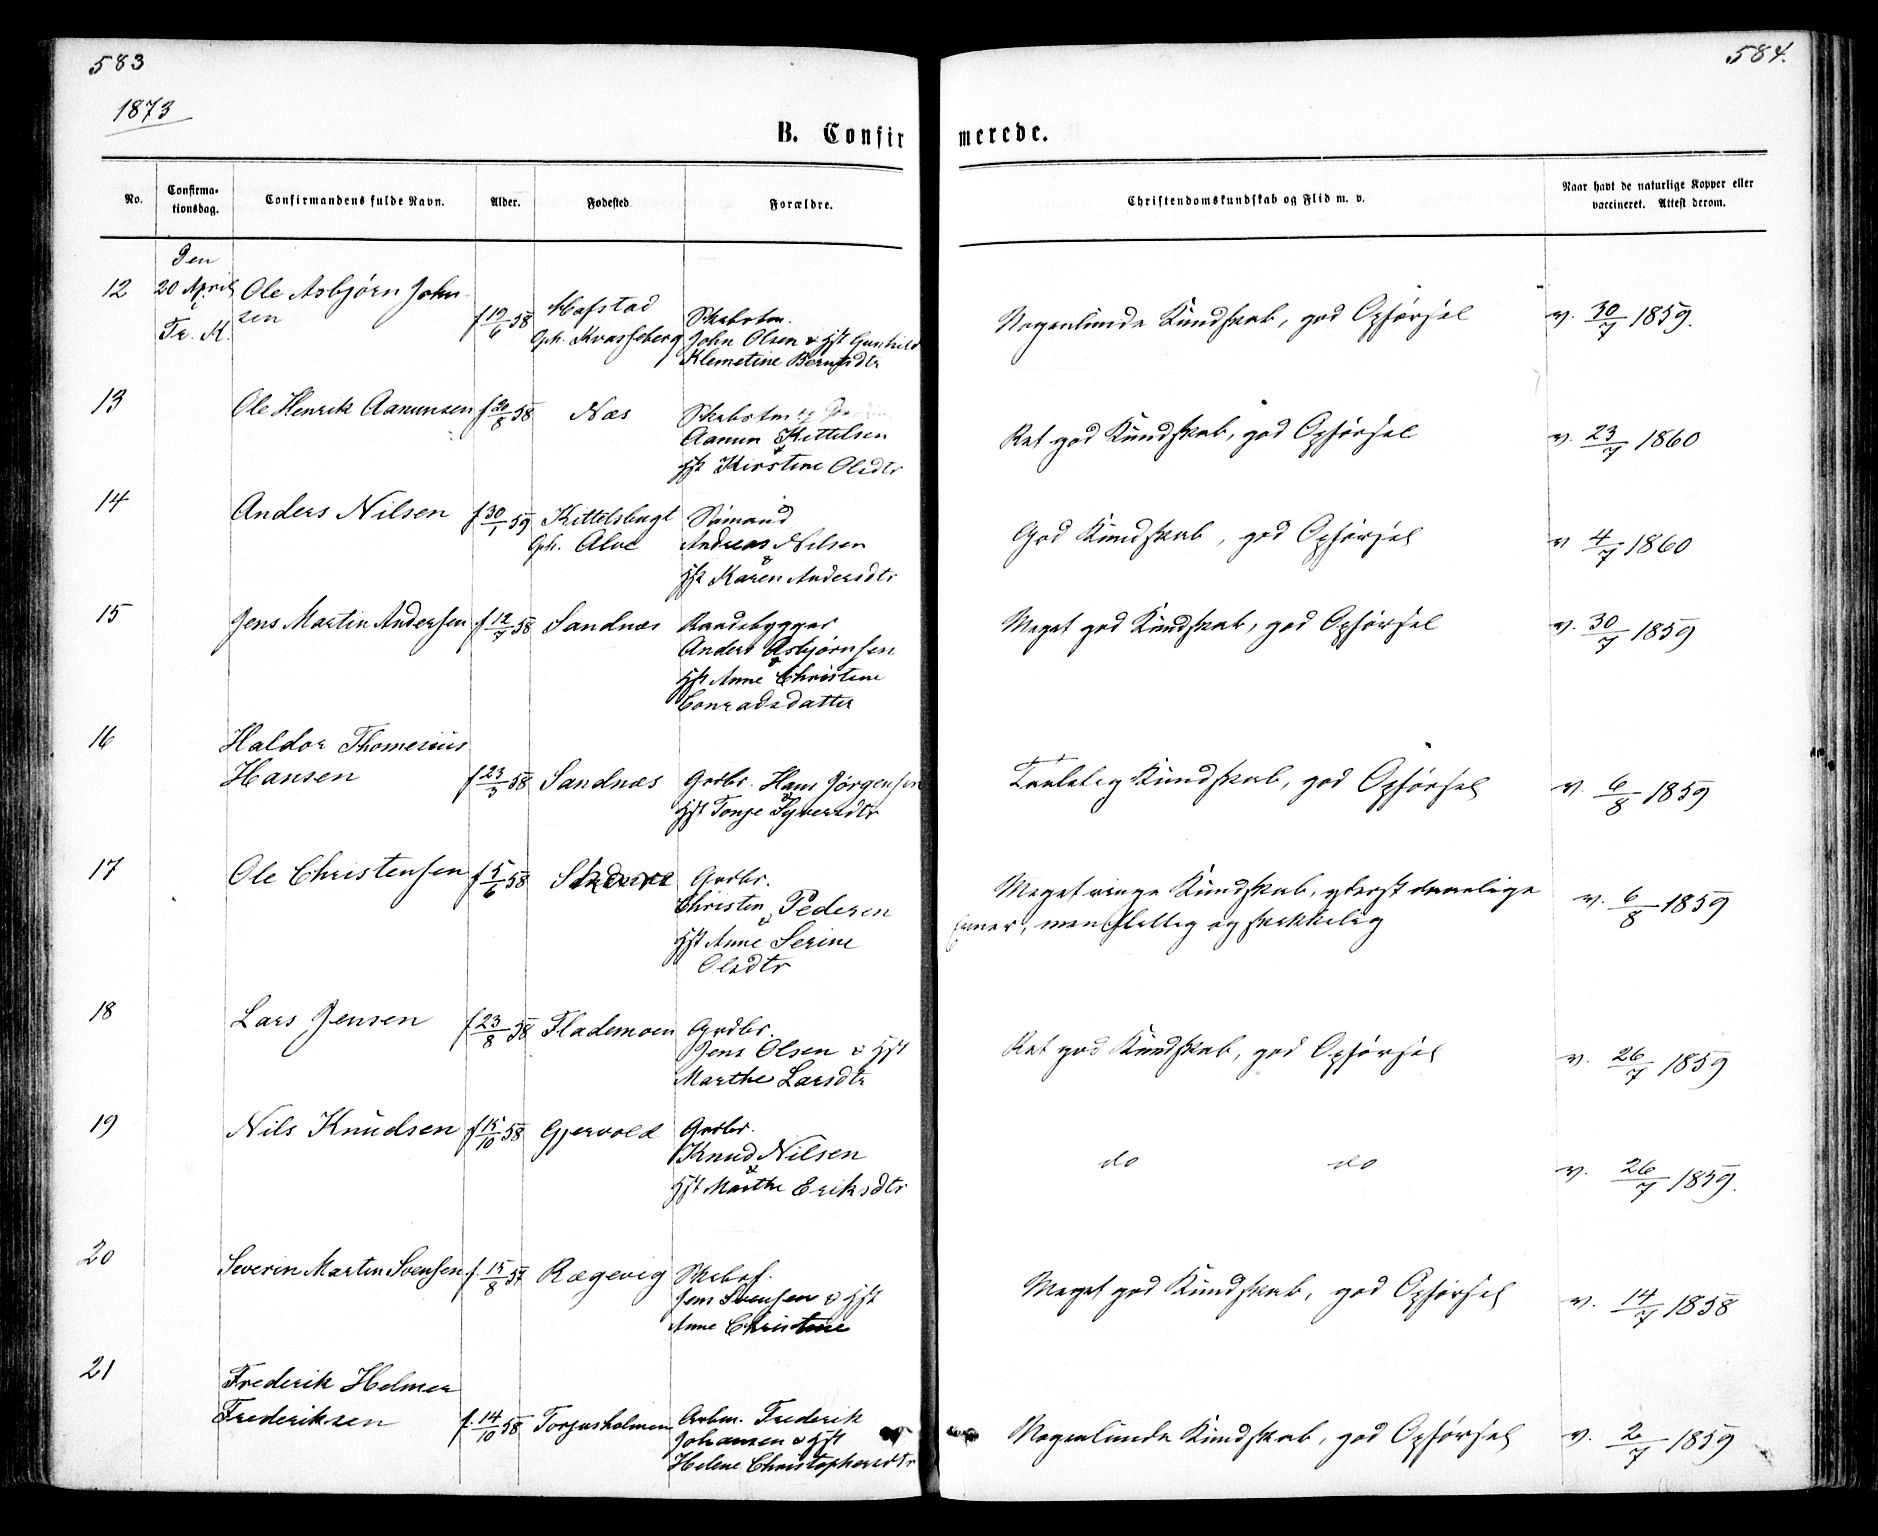 583
584.
1873
B. Confirmerede.
No.
Confirma-
tionsdag.
Confirmandens fulde Navn.
Alder.
Fødested
Forældre.
Christendomskundskab og Flid m. v.
Naar havt de naturlige Kopper eller
vaccineret. Attest derom.
Den
12 20 April Ole Asbjørn John-
i
Tr. K.
sen f 19/6 58
Opfh. Kvasseberg
Skibstm.
John Olsen & Hst Gunhild
Klemetine Berntsdtr
Nogenlunde Kundskab, god Opførsel v. 30/7 1859.
13 Ole Henrik Aanunsen f 20/8 58 Næs Skibstm
Aanun Kittelsen
&
Hst Kirstine Olsdtr
Ret god Kundskab, god Opførsel v. 23/7 1860
14 Anders Nilsen f 30/1 59 Kittelsbugt Sømand
Oph. Alve Andreas Nilsen
&
Hst Karen Andersdtr
God Kundskab, god Opførsel v 4/7 1860
15 Jens Martin Andersen f 12/7 58 Sandnæs Baadsbygger
Anders Asbjørnsen
&
Hst Anne Christine
Conradsdatter
Meget god Kundskab, god Opførsel v. 30/7 1859
16 Haldor Thomesius
Hansen f 23/5 58 Sandnæs Grdbr. Hans Jørgensen
&
Hst Tonje Syversdtr
Taalelig Kundskab, god Opførsel v. 6/8 1859
17 Ole Christensen f 5/6 58 Grdbr.
Christen Pedersen
&
Hst Anne Serine
Olsdtr
Meget ringe Kundskab, yderst daarlige
Evner, men flittig og skikkelig v. 6/8 1859
18 Lars Jensen f 23/8 58 Flademoen Grdbr.
Jens Olsen & Hst
Marthe Larsdtr
Ret god Kundskab, god Opførsel v. 26/7 1859
19 Nils Knudsen f 15/10 58 Gjervold Grdbr.
Knud Nilsen
&
Hst Marthe Eriksdtr
do do v. 26/7 1859.
20 Severin Martin Svensen f. 15/8 57 Rægevig Skibsf.
Jens Svensen & Hst
Anne Christine
Meget god Kundskab, god Opførsel v. 14/7 1858
21 Frederik Helmer
Frederiksen f. 14/10 58 Torjusholmen Arbm. Frederik
Johansen & Hst
Helene Christophersdtr
Nogenlunde Kundskab, god Opførsel v. 2/7 1859